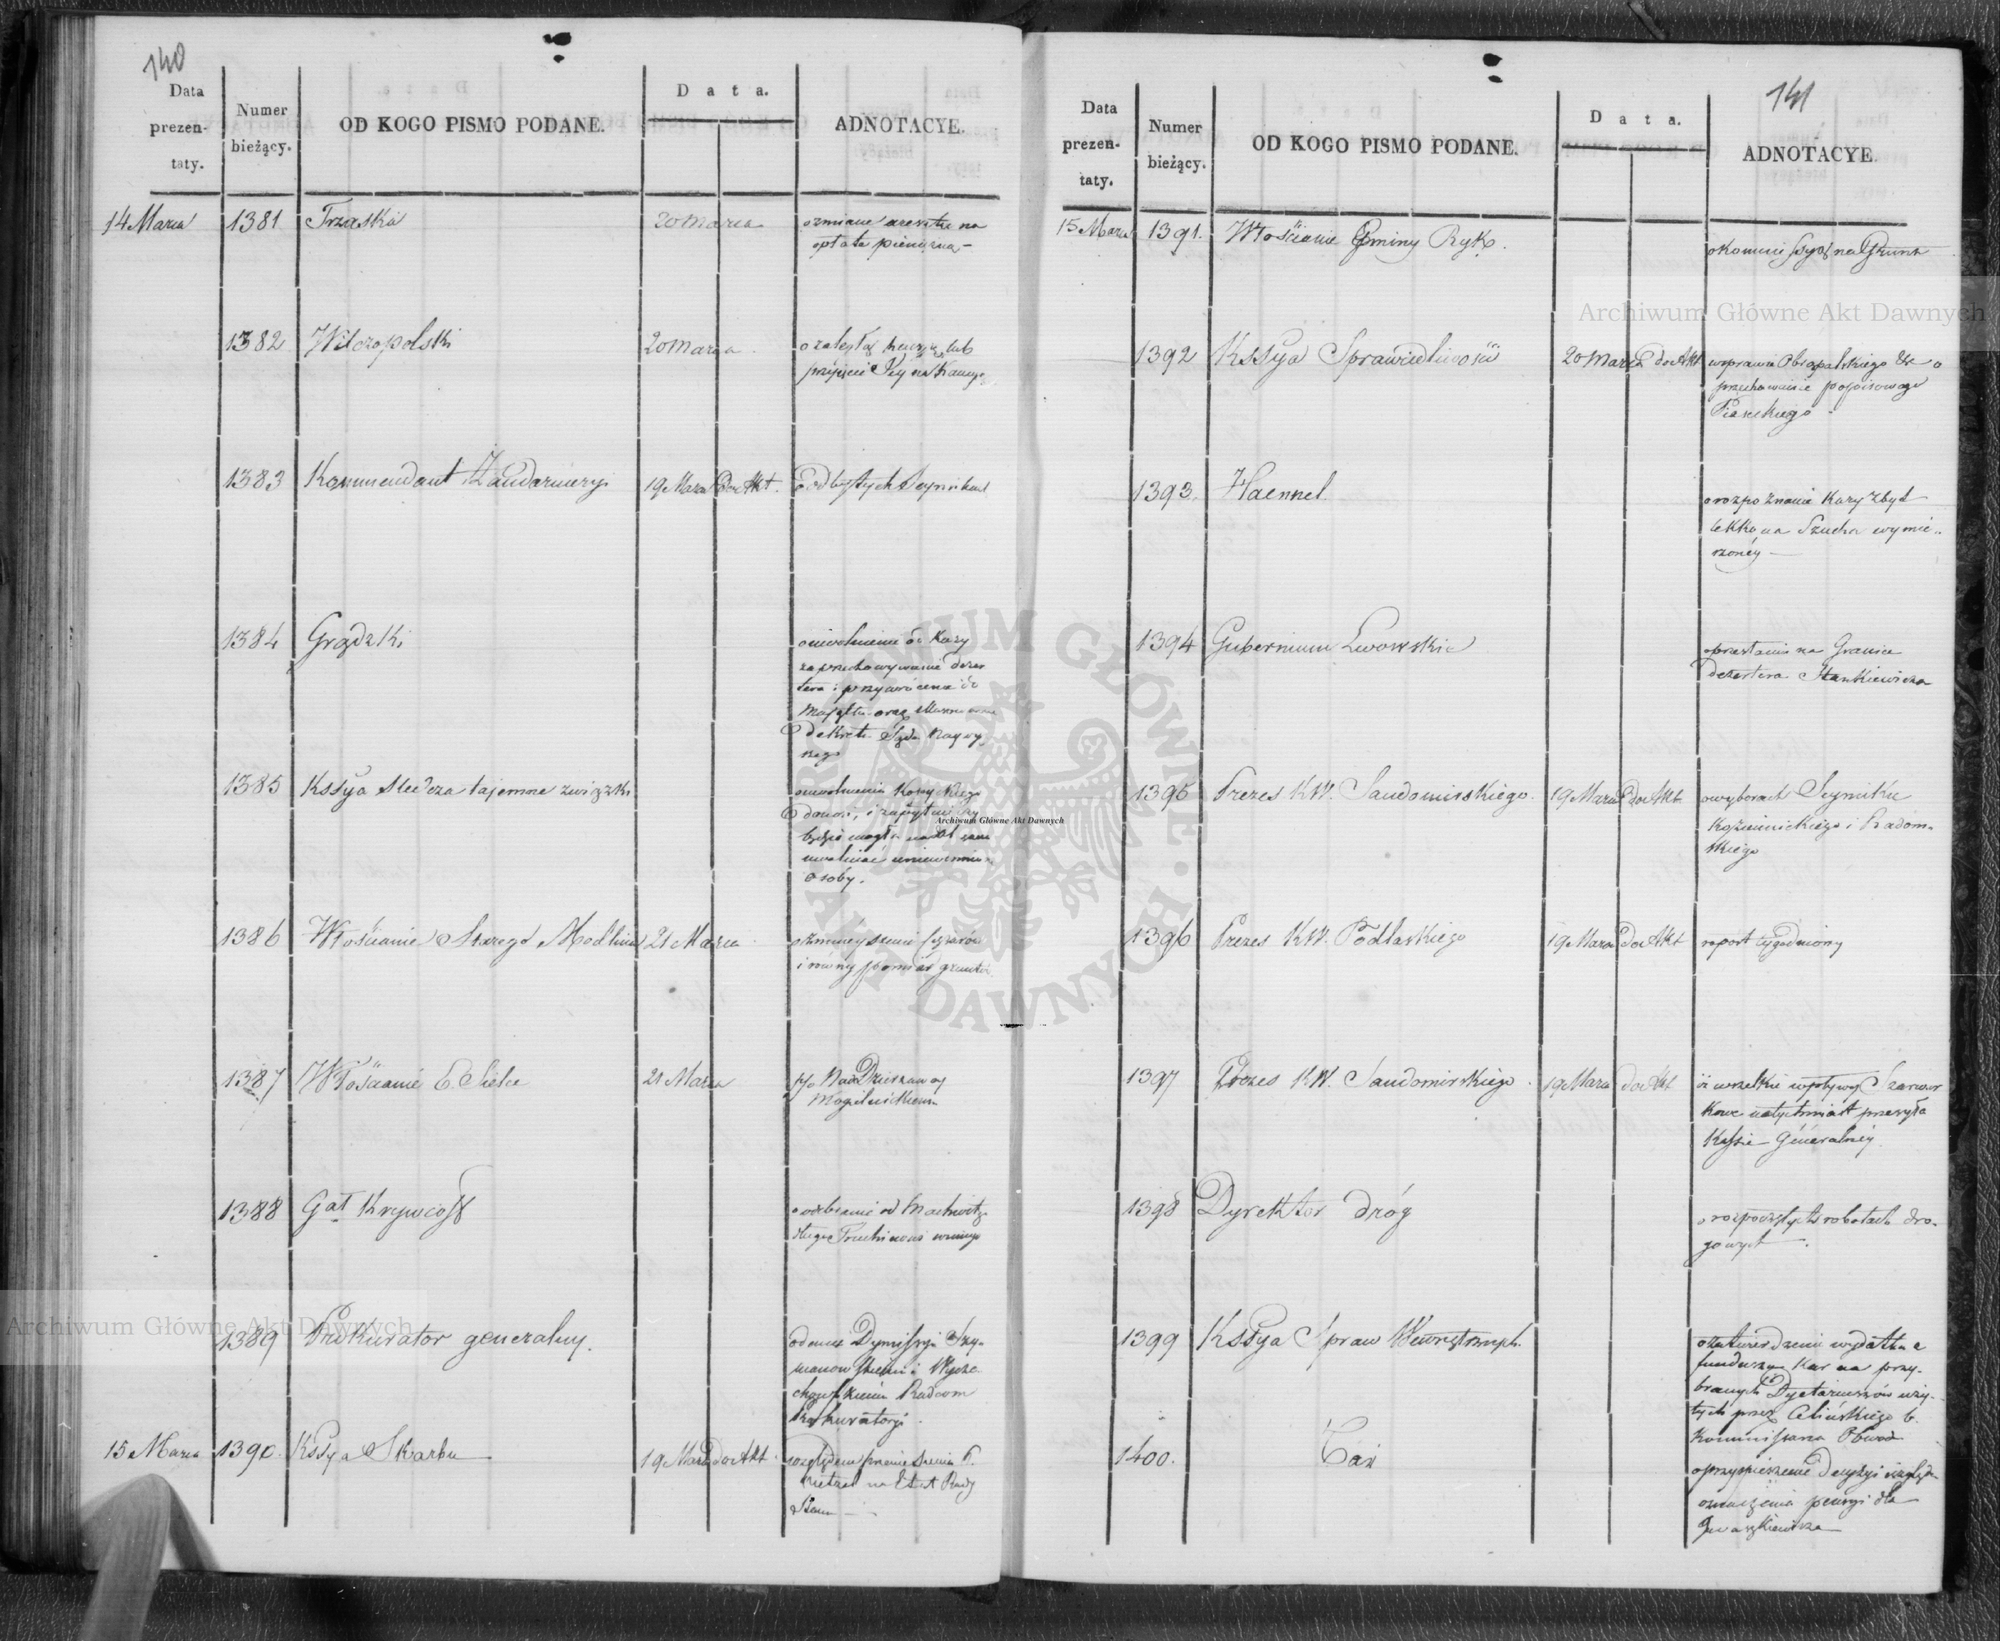 140
Data
prezen-
taty.
Numer
bieżący.
OD KOGO PISMO PODANE.
Data.
ADNOTACYE.
14 Marca 1381 Trzaska 20 Marca o zmianę aresztu na
opłatę pieniężną –
1382 Wilczopolski 20 Marca o zaległą pensyę lub
przyjęcie
1383 Kommendant Żandarmeryi 19 Marca do Akt. o odbytych Seymikach
1384 Grądzki o uwolnienie od kary
za przechowywanie dezer
tera i przywrócenie do
Majątku oraz
dekretu Sądu Naywyż
szego
1385 Kssya Sledcza tajemne związki o uwolnieniu
i zapytanie czy
będzie mogła nadal sama
uwalniać uniewinnione
osoby.
1386 Włościanie Starego Modlina 21 Marca o zmnieyszenie ciężarów
i równy pomiar gruntów
1387 Włościanie E. Sielce 21 Marca p/o Nad Dzierzawcy
Mogelnickiemu
1388 Gał Krywcoff o odebranie od Machwitz
sługi
1389 Prokurator generalny. o danie Dymissyi Szy-
manowskiemu i
Radcom
Prokuratoryi.
15 Marca 1390. Kssya Skarbu 19 Marca do Akt. względem przeniesienia P.
na Etat Rady
Stanu –
141
Data
prezen-
taty.
Numer
bieżący.
OD KOGO PISMO PODANE.
Data.
ADNOTACYE.
15 Marca 1391. Włościanie Gminy Ryki. o kommissyą na Grunt
1392 Kssya Sprawiedliwości 20 Marca do Akt w sprawie &c o
przechowanie popisowego
1393. Haennel o rozpoznanie kary zbyt
lekko na Szucha wymie-
rzonéy –
1394 Gubernium Lwowskie o przesłanie na Granicę
dezertera Stankiewicza
1395 Prezes K.W. Sandomirskiego. 19 Marca do Akt o wyborach Seymiku
Kozienickiego i Radom-
skiego
1396 Prezes K.W. Podlaskiego 19 Marca do Akt raport tygodniowy
1397 Prezes K.W. Sandomirskiego. 19 Marca do Akt iż wszelkie wpływy Szarwar
kowe natychmiast przesyła
Kassie Généralnéy.
1398 Dyrektor dróg o rozpoczętych robotach dro-
gowych –.
1399 Kssya Spraw Wewnętrznych. o zatwierdzenie wydatku z
funduszu kar na przy-
branych Dyetaryuszów uży-
tych przez Celińskiego b.
Kommissarza Obwod.
1400. Taż o przyspieszenie Decyzyi względem
oznaczenia pensyi dla
Iwaszkiewicza
Archiwum Główne Akt Dawnych
Archiwum Główne Akt Dawnych
Archiwum Główne Akt Dawnych
ARCHIWUM GŁÓWNE AKT DAWNYCH